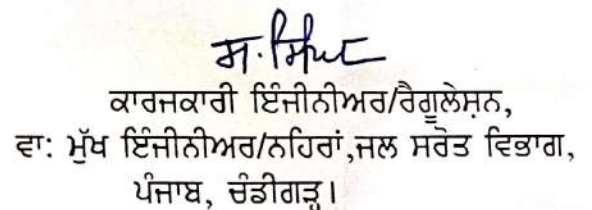 ਸ. ਸਿੰਘ
ਕਾਰਜਕਾਰੀ ਇੰਜੀਨੀਅਰ/ਰੈਗੂਲੇਸ਼ਨ,
ਵਾ: ਮੁੱਖ ਇੰਜੀਨੀਅਰ/ਨਹਿਰਾਂ,ਜਲ ਸਰੋਤ ਵਿਭਾਗ,
ਪੰਜਾਬ, ਚੰਡੀਗੜ੍ਹ।